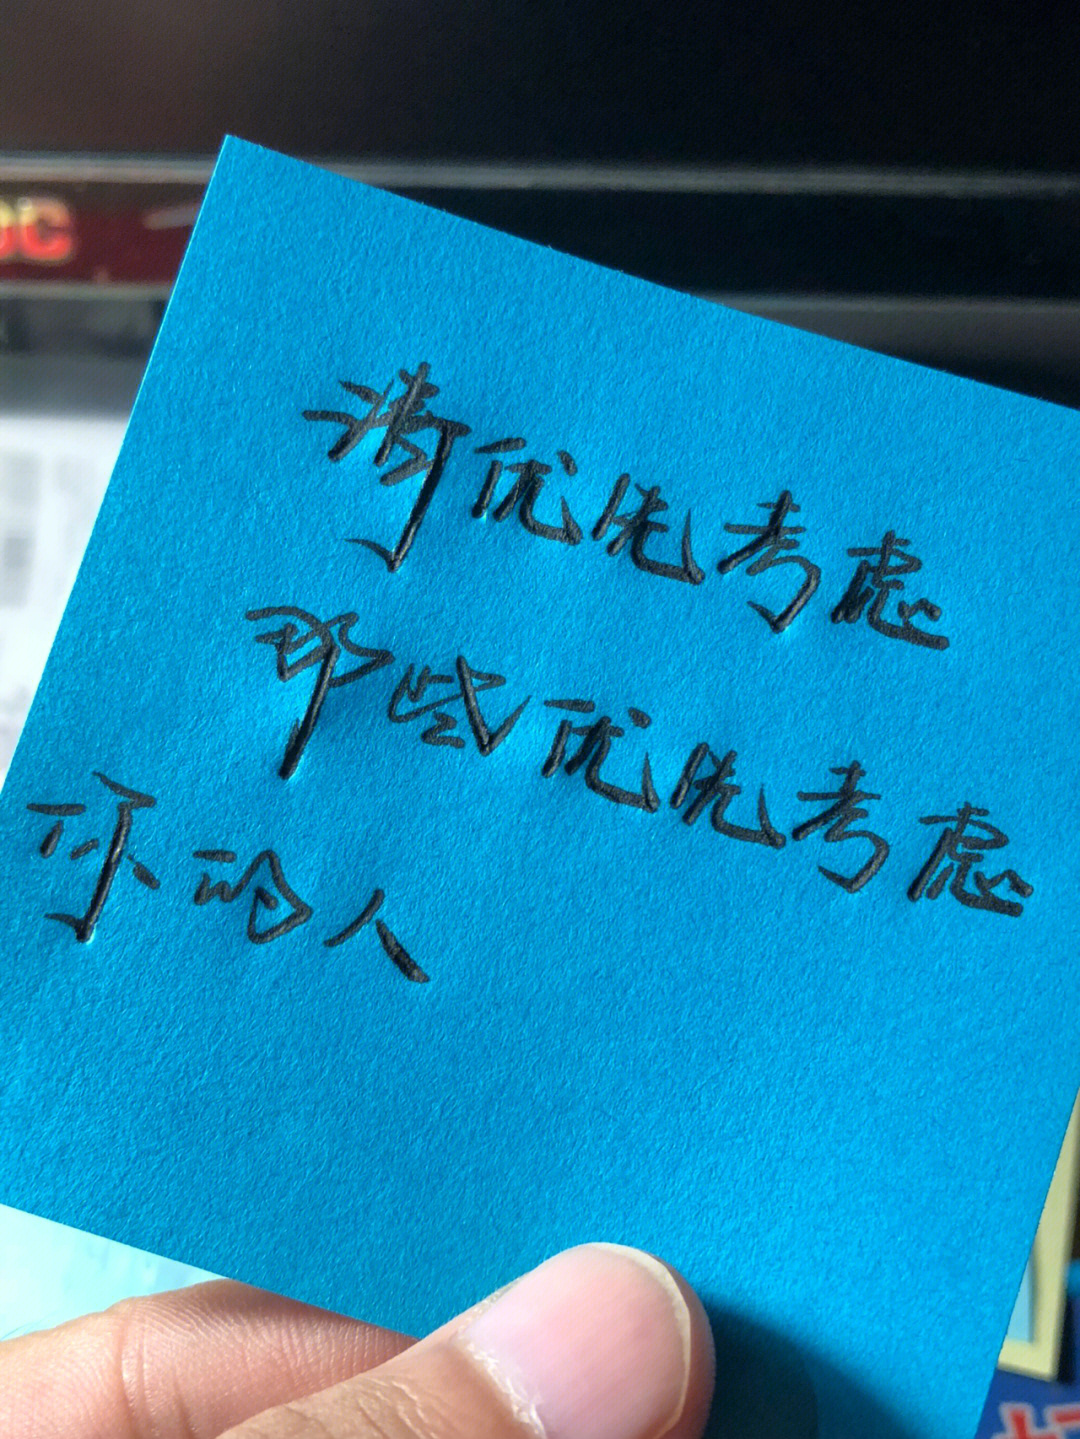 请优先考虑
那些优先考虑
你的人
OC